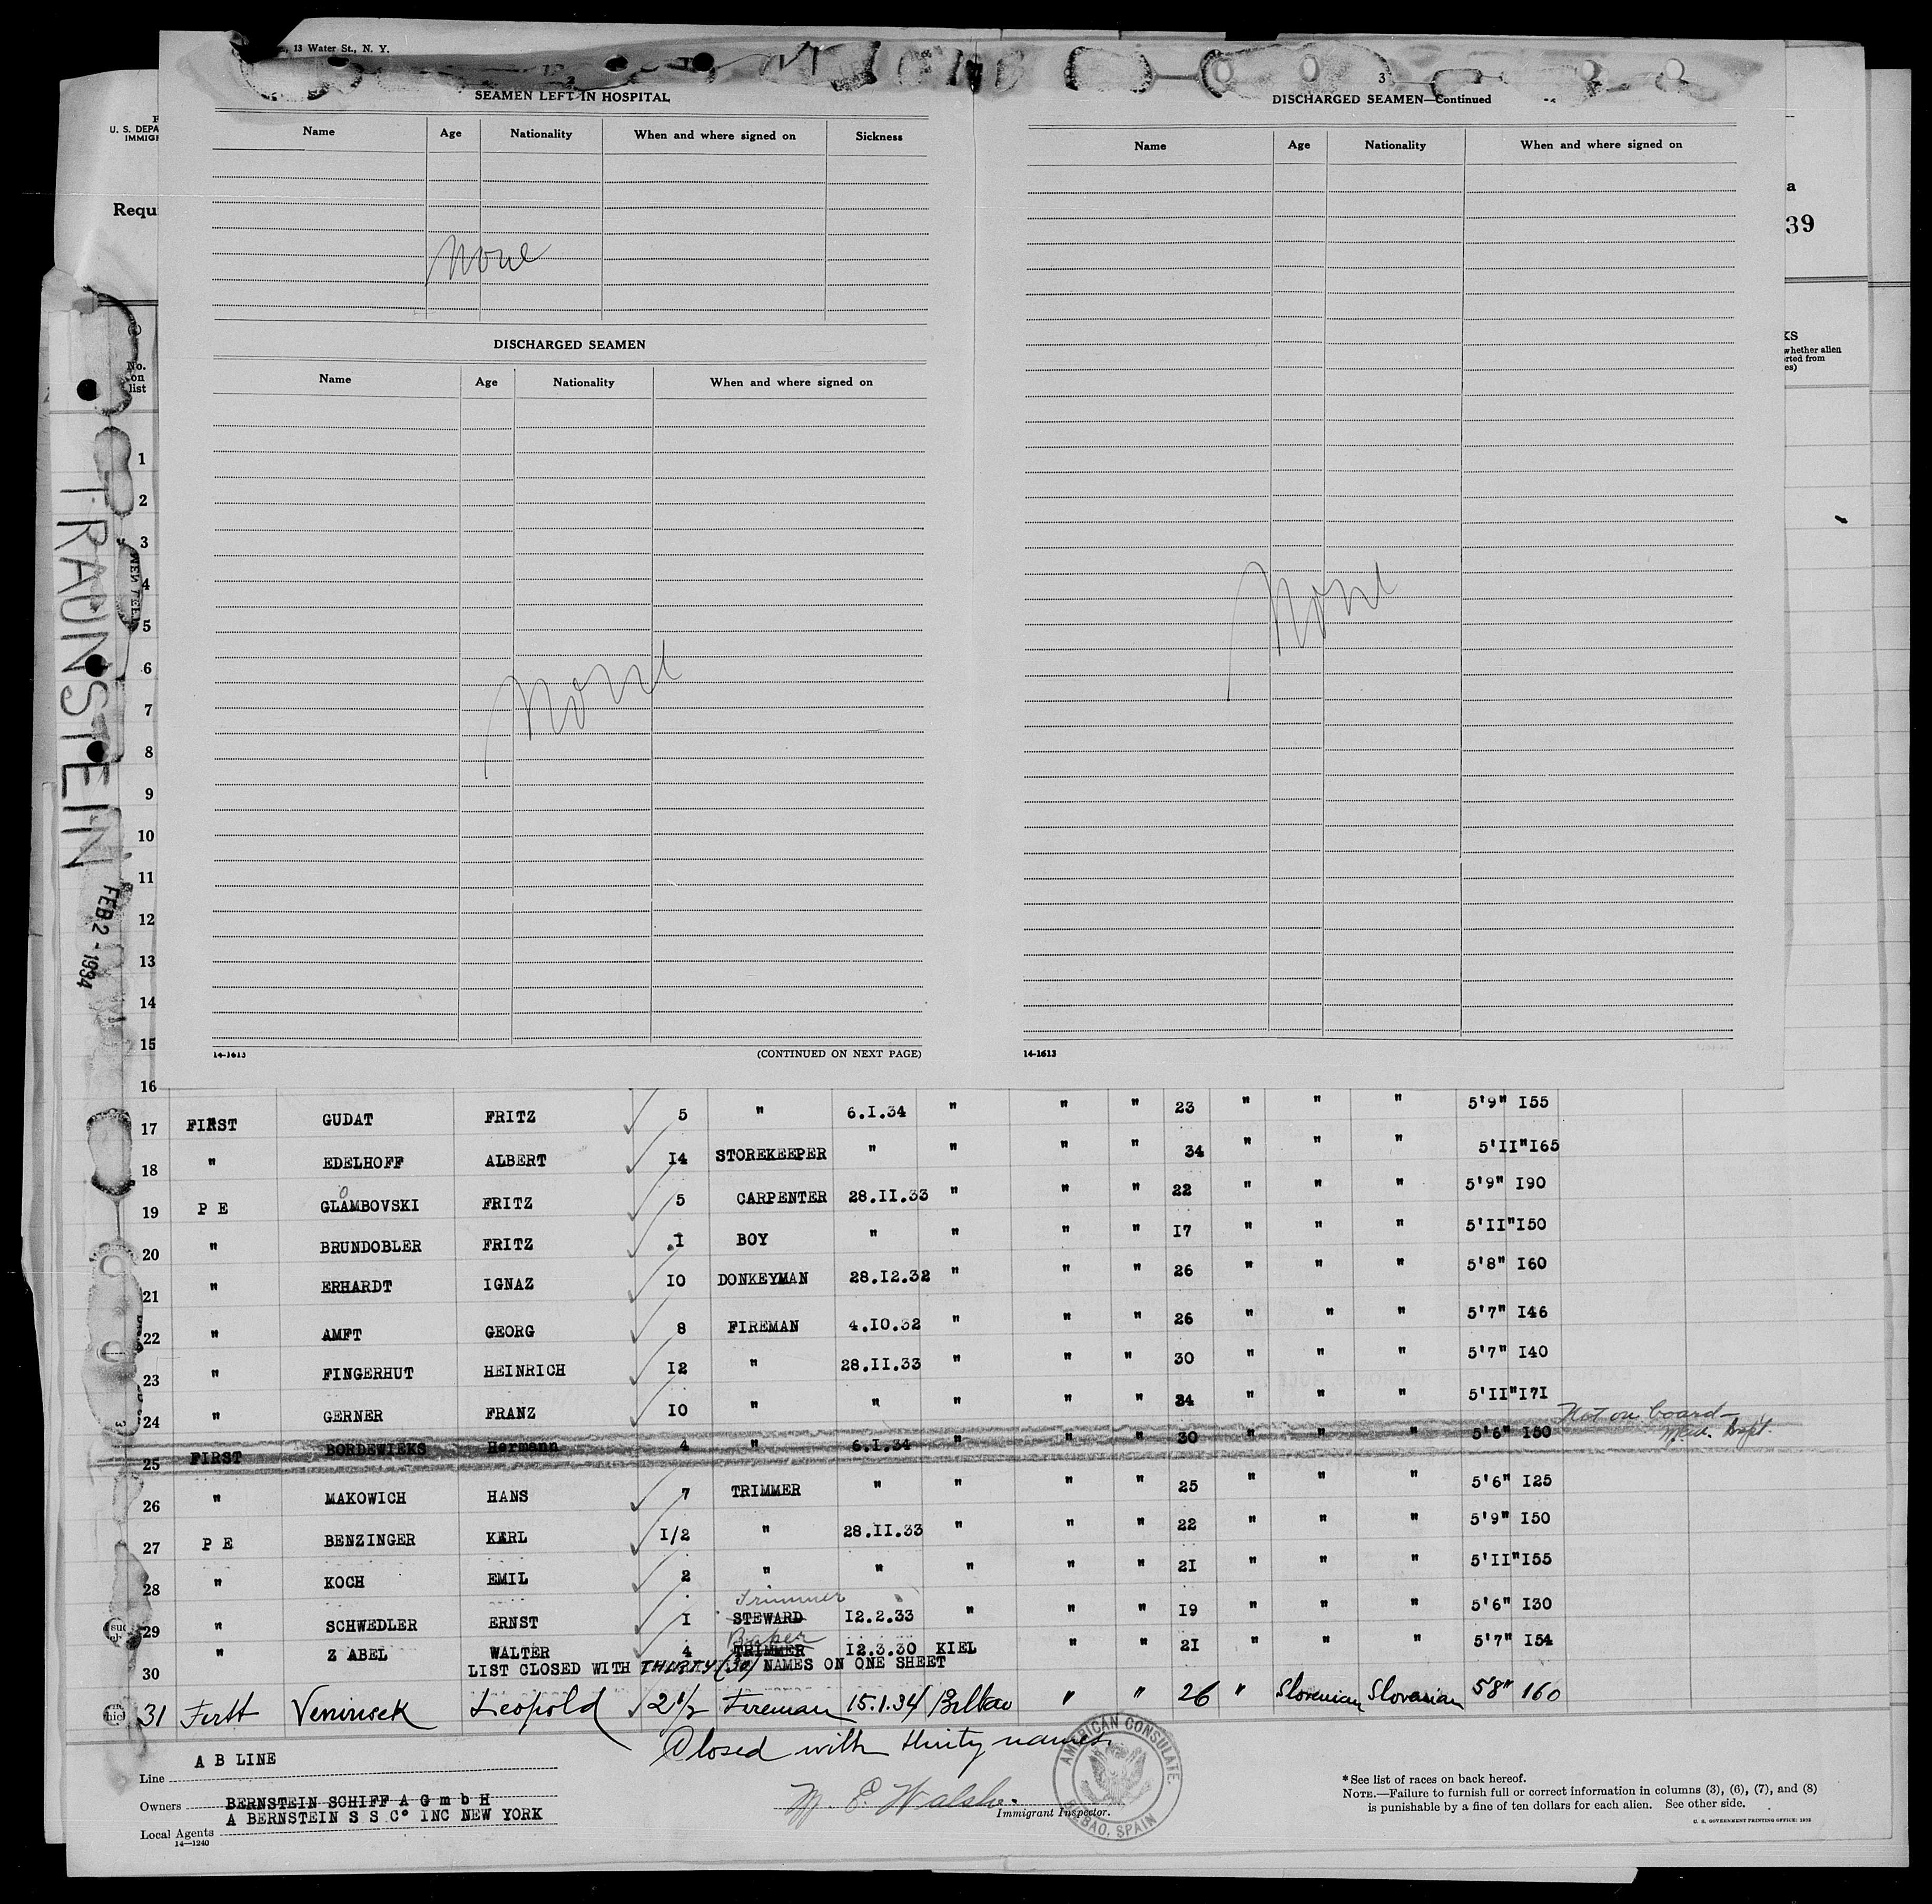 13 Water St., N. Y.
SEAMEN LEFT IN HOSPITAL
Name Age Nationality When and where signed on Sickness
None
DISCHARGED SEAMEN
Name Age Nationality When and where signed on
None
14-1613 (CONTINUED ON NEXT PAGE)
3
DISCHARGED SEAMEN—Continued
Name Age Nationality When and where signed on
None
14-1613
U. S. DEPA
IMMIG
Requ
a
39
KS
whether alien
orted from
es)
No.
on
list
TRAUNSTEIN
FEB 2 - 1934
1
2
3
4
5
6
7
8
9
10
11
12
13
14
15
16
17 FIRST GUDAT FRITZ 5 " 6.I.34 " " " 23 " " " 5'9" I55
18 " EDELHOFF ALBERT I4 STOREKEEPER " " " " 34 " " " 5'II" I65
19 P E GLAMBOVSKI FRITZ 5 CARPENTER 28.II.33 " " " 22 " " " 5'9" I90
20 " BRUNDOBLER FRITZ I BOY " " " " I7 " " " 5'II" I50
21 " ERHARDT IGNAZ IO DONKEYMAN 28.I2.32 " " " 26 " " " 5'8" I60
22 " AMFT GEORG 8 FIREMAN 4.IO.32 " " " 26 " " " 5'7" I46
23 " FINGERHUT HEINRICH I2 " 28.II.33 " " " 30 " " " 5'7" I40
24 " GERNER FRANZ IO " " " " " 34 " " " 5'II" I7I
25 FIRST BORDEWIEKS Hermann 4 " 6.I.34 " " " 30 " " " 5'6" I50 Not on board
26 " MAKOWICH HANS 7 TRIMMER " " " " 25 " " " 5'6" I25
27 P E BENZINGER KARL I/2 " 28.II.33 " " " 22 " " " 5'9" I50
28 " KOCH EMIL 2 " " " " " 2I " " " 5'II" I55
Trimmer
29 " SCHWEDLER ERNST I STEWARD I2.2.33 " " " I9 " " " 5'6" I30
30 " Z ABEL WALTER 4 TRIMMER I2.3.30 KIEL " " 2I " " " 5'7" I54
LIST CLOSED WITH THIRTY (30) NAMES ON ONE SHEET
31 Leopold 2 1/2 Fireman 15.1.34 Bilbao " " 26 " Slovenian Slovenian 5'8" 160
Closed with thirty names.
A B LINE
Line
Owners BERNSTEIN SCHIFF A G m b H
A BERNSTEIN S S C° INC NEW YORK
Local Agents
14—1240
M. E. Walsh.
Immigrant Inspector.
AMERICAN CONSULATE.
BILBAO, SPAIN
*See list of races on back hereof.
NOTE.—Failure to furnish full or correct information in columns (3), (6), (7), and (8)
is punishable by a fine of ten dollars for each alien. See other side.
U. S. GOVERNMENT PRINTING OFFICE: 1932